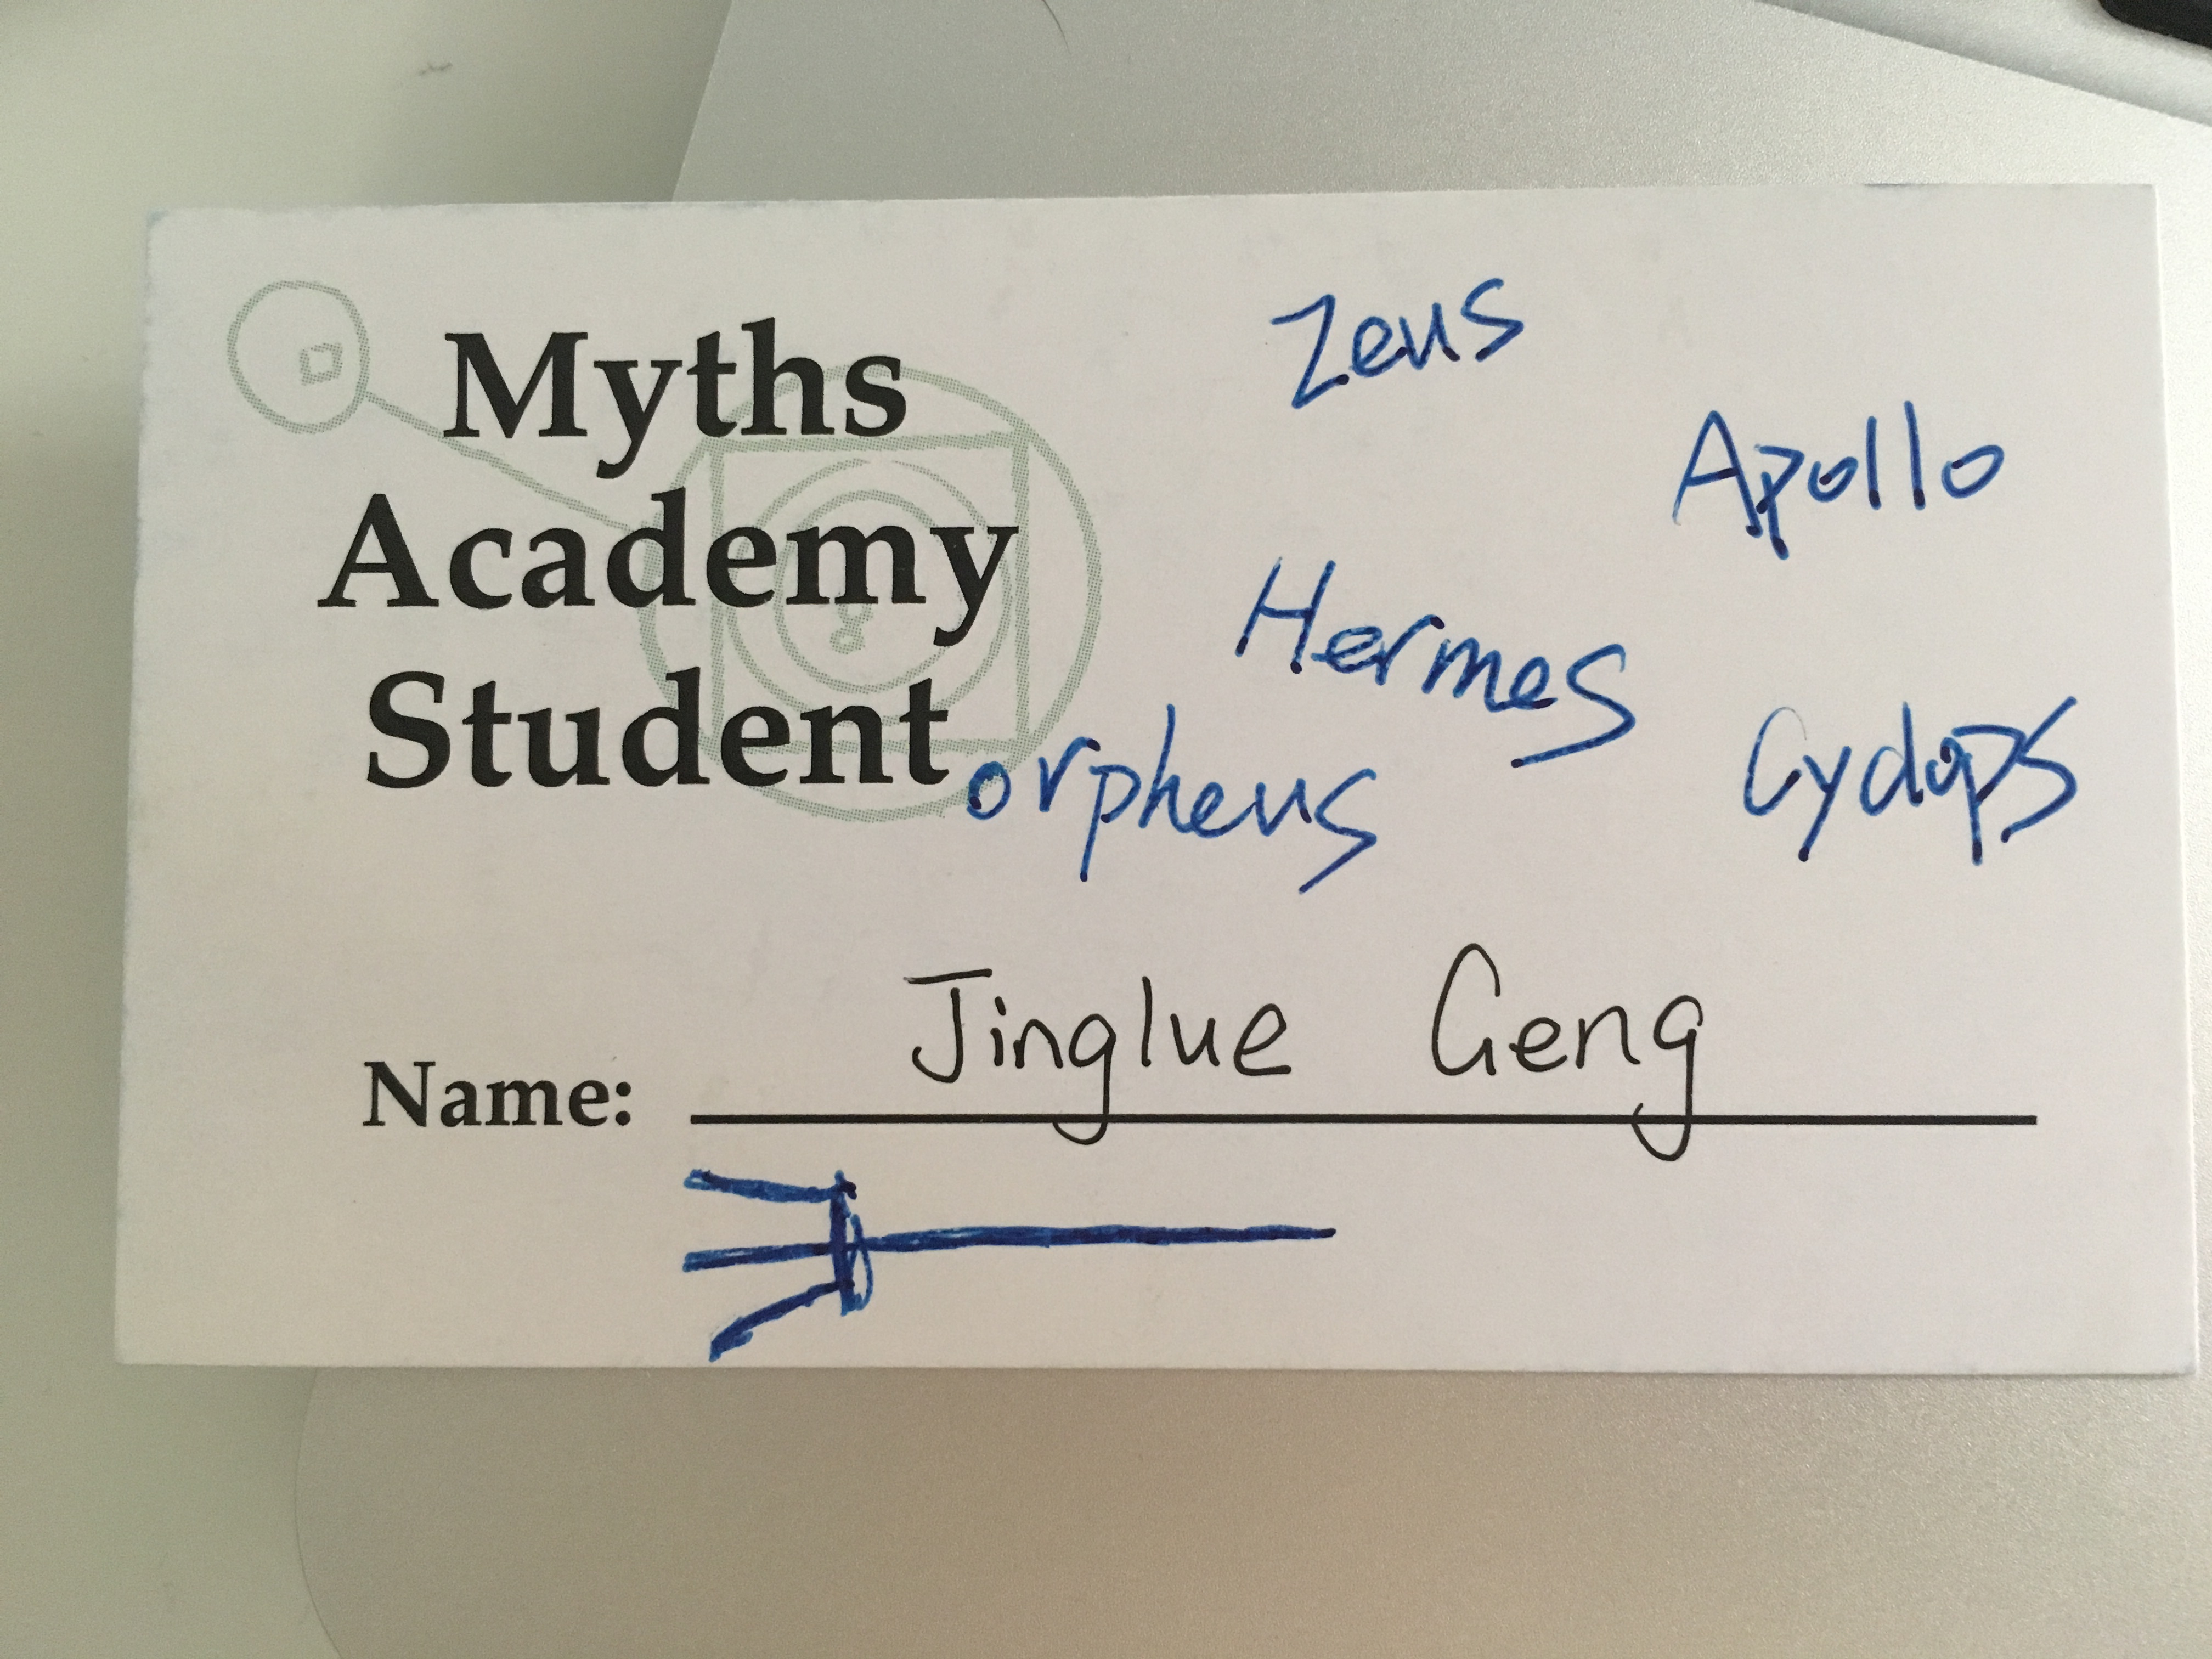 Myths
Academy
Student
Zeus
Apollo
Hermes
orpheus
Cyclops
Name: Jinglue Geng